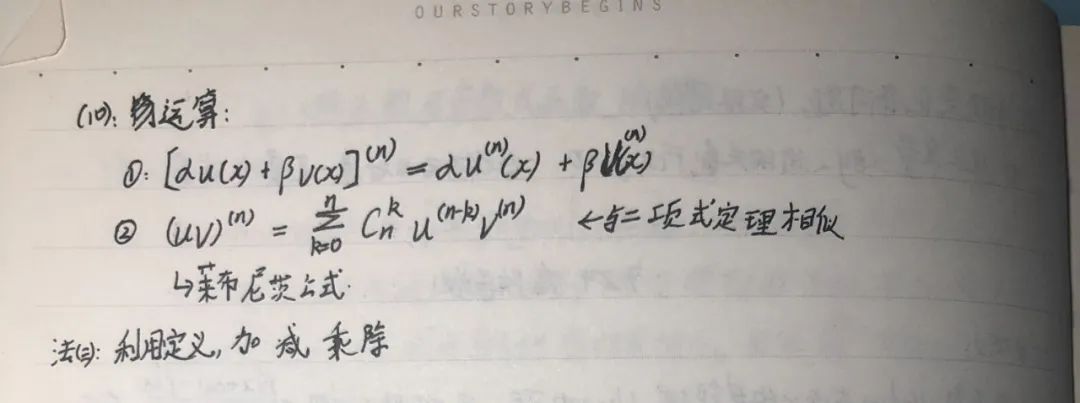 OURSTORYBEGINS
(10): 运算:
①: [αu(x)+βv(x)]^(n) = αu^(n)(x) + βv^(n)(x)
② (uv)^(n) = Σ_{k=0}^{n} C_n^k u^(n-k) v^(n) ←与二项式定理相似
↳莱布尼茨公式.
法(三): 利用定义, 加 减 乘 除